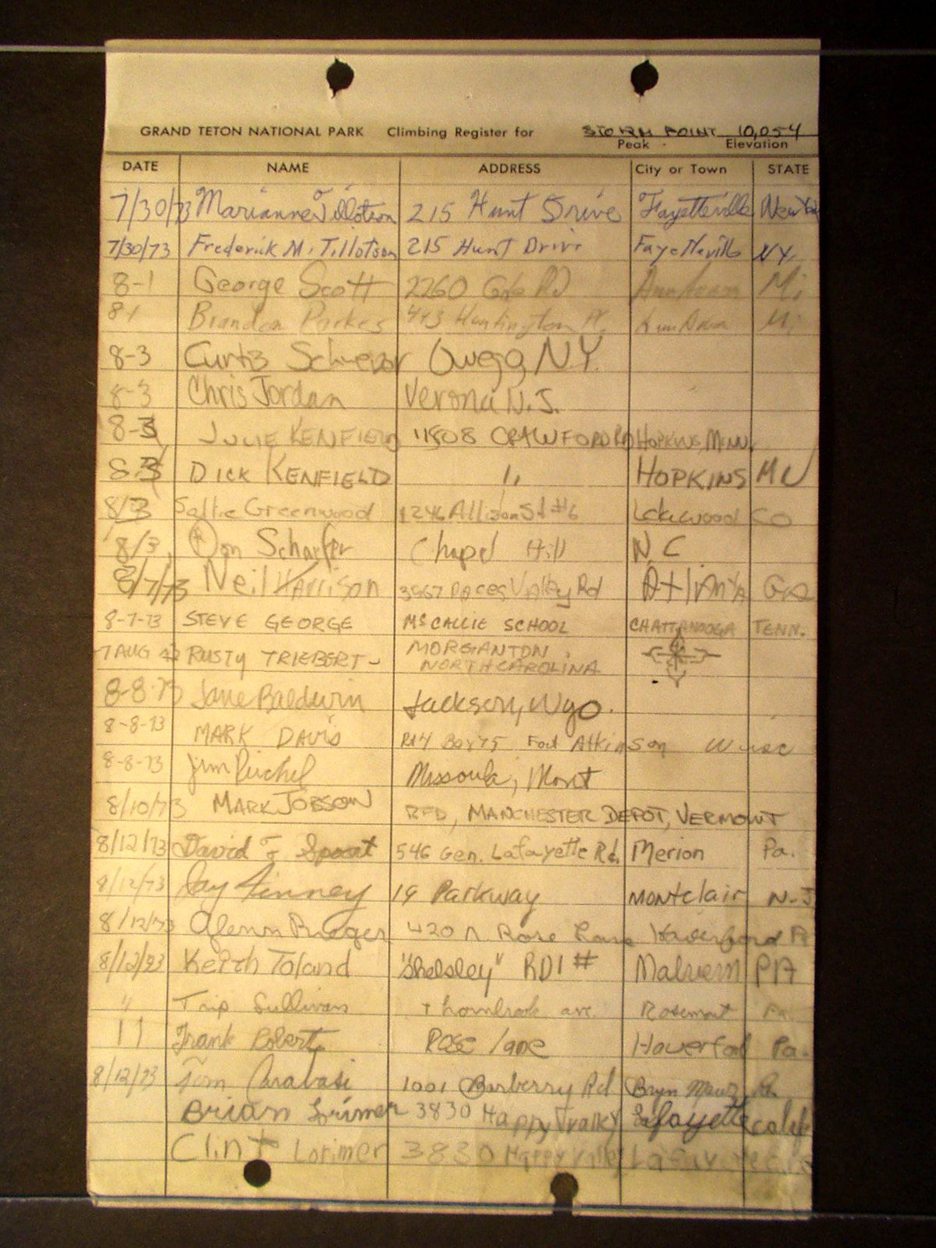 GRAND TETON NATIONAL PARK Climbing Register for STORM POINT 10,054
Peak Elevation
DATE NAME ADDRESS City or Town STATE
7/30/73 Marianne Tillotson 215 Hunt Drive Fayetteville New
7/30/73 Frederick M. Tillotson 215 Hunt Drive Fayetteville NY.
8-1 George Scott 2260 Rd Ann Mi
8-1 Brandon Parkes 443 Huntington Pl. Mi
8-3 Curtis Owego, NY.
8-3 Chris Jordan Verona N.J.
8-3 JULIE KENFIELD 11808 CRAWFORD RD HOPKINS, MINN.
8-3 DICK KENFIELD " HOPKINS
8/3 Sallie Greenwood 1246 Allison St #6 Lakewood CO
8/3 Don Schaefer Chapel Hill N C
8/7/73 Neil Harrison 3967 Paces Valley Rd Atlanta Ga
8-7-73 STEVE GEORGE McCALLIE SCHOOL CHATTANOOGA TENN.
7 AUG RUSTY TRIEBERT- MORGANTON,
NORTH CAROLINA
8-8-73 Jane Baldwin Jackson, Wyo.
8-8-73 MARK DAVIS Rt 4 Box 75 Fort Atkinson Wisc
8-8-73 Jim Missoula, Mont
8/10/73 MARK JOBSON RFD, MANCHESTER DEPOT, VERMONT
8/12/73 David F Sproat 546 Gen. Lafayette Rd. Merion Pa.
8/12/73 Jay Finney 19 Parkway Montclair N-J
8/12/73 Glenn 420 N. Rose Lane Haverford Pa
8/12/73 Keith Toland "Shelsley" RD1 # Malvern PA
" Trip Sullivan Thornbrook ave. Rosemont Pa.
11 Frank Robert Rose lane Haverfod Pa.
8/12/73 Tom Carabasi 1001 Barberry Rd Bryn Mawr Pa
Brian Lorimer 3830 Happy Valley Lafayette calif
Clint Lorimer 3830 Happy Valley Lafayette